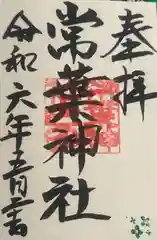 奉拝
常葉神社
令和六年五月